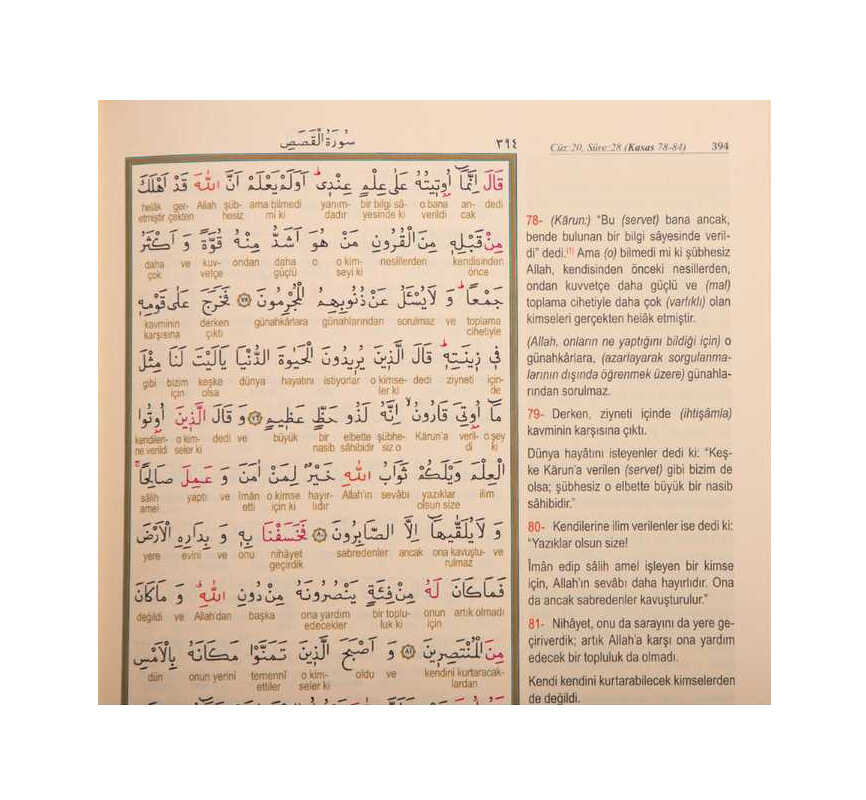 سُورَةُ الْقَصَصِ
٣٩٤
Cüz:20, Sûre:28 (Kasas 78-84) 394
قَالَ اِنَّمَٓا اُو۫ت۪يتُهُ عَلٰى عِلْمٍ عِنْد۪يۜ اَوَلَمْ يَعْلَمْ اَنَّ اللّٰهَ قَدْ اَهْلَكَ
helâk ger- Allah şüb- ama bilmedi yanım- bir bilgi sâ- o bana an- dedi
etmiştir çekten hesiz mi ki dadır yesinde ki verildi cak
مِنْ قَبْلِه۪ مِنَ الْقُرُونِ مَنْ هُوَ اَشَدُّ مِنْهُ قُوَّةً وَ اَكْثَرُ
daha ve kuv- ondan daha o o kim- nesillerden kendisinden
çok vetçe güçlü seyi ki önce
جَمْعًاۜ وَ لَا يُسْـَٔلُ عَنْ ذُنُوبِهِمُ الْمُجْرِمُونَ ﴿٧٨﴾ فَخَرَجَ عَلٰى قَوْمِه۪
kavminin derken günahkârlara günahlarından sorulmaz ve toplama
karşısına çıktı cihetiyle
ف۪ي ز۪ينَتِه۪ۜ قَالَ الَّذ۪ينَ يُر۪يدُونَ الْحَيٰوةَ الدُّنْيَا يَالَيْتَ لَنَا مِثْلَ
gibi bizim keşke dünya hayatını istiyorlar o kimse- dedi ziyneti için-
için olsa ler ki de
مَٓا اُو۫تِيَ قَارُونُۙ اِنَّهُ لَذُو حَظٍّ عَظ۪يمٍ ﴿٧٩﴾ وَ قَالَ الَّذ۪ينَ اُو۫تُوا
kendilen- o kim- dedi ve büyük bir elbette şübhe- Kârun'a veril- o şey
ne verildi seler ki nasib sâhibidir siz o di ki
الْعِلْمَ وَيْلَكُمْ ثَوَابُ اللّٰهِ خَيْرٌ لِمَنْ اٰمَنَ وَ عَمِلَ صَالِحًاۚ
sâlih yaptı ve îmân o kimse hayır- Allah'ın sevâbı yazıklar ilim
amel etti için ki lıdır olsun size
وَ لَا يُلَقّٰيهَٓا اِلَّا الصَّابِرُونَ ﴿٨٠﴾ فَخَسَفْنَا بِه۪ وَ بِدَارِهِ الْاَرْضَ
yere evini ve onu nihâyet sabredenler ancak ona kavuştu- ve
geçirdik rulmaz
فَمَا كَانَ لَهُ مِنْ فِئَةٍ يَنْصُرُونَهُ مِنْ دُونِ اللّٰهِۗ وَ مَا كَانَ
değildi ve Allah'dan başka ona yardım bir toplu- onun artık olmadı
edecekler luk ki için
مِنَ الْمُنْتَصِر۪ينَ ﴿٨١﴾ وَ اَصْبَحَ الَّذ۪ينَ تَمَنَّوْا مَكَانَهُ بِالْاَمْسِ
dün onun yerini temennî o kim- oldu ve kendini kurtaracak-
ettiler seler ki lardan
78- (Kârun:) “Bu (servet) bana ancak,
bende bulunan bir bilgi sâyesinde veril-
di” dedi.[1] Ama (o) bilmedi mi ki şübhesiz
Allah, kendisinden önceki nesillerden,
ondan kuvvetçe daha güçlü ve (mal)
toplama cihetiyle daha çok (varlıklı) olan
kimseleri gerçekten helâk etmiştir.
(Allah, onların ne yaptığını bildiği için) o
günahkârlara, (azarlayarak sorgulanma-
larının dışında öğrenmek üzere) günahla-
rından sorulmaz.
79- Derken, ziyneti içinde (ihtişâmla)
kavminin karşısına çıktı.
Dünya hayatını isteyenler dedi ki: “Keş-
ke Kârun'a verilen (servet) gibi bizim de
olsa; şübhesiz o elbette büyük bir nasib
sâhibidir.”
80- Kendilerine ilim verilenler ise dedi ki:
“Yazıklar olsun size!
Îmân edip sâlih amel işleyen bir kimse
için, Allah'ın sevâbı daha hayırlıdır. Ona
da ancak sabredenler kavuşturulur.”
81- Nihâyet, onu da sarayını da yere ge-
çiriverdik; artık Allah'a karşı ona yardım
edecek bir topluluk da olmadı.
Kendi kendini kurtarabilecek kimselerden
de değildi.